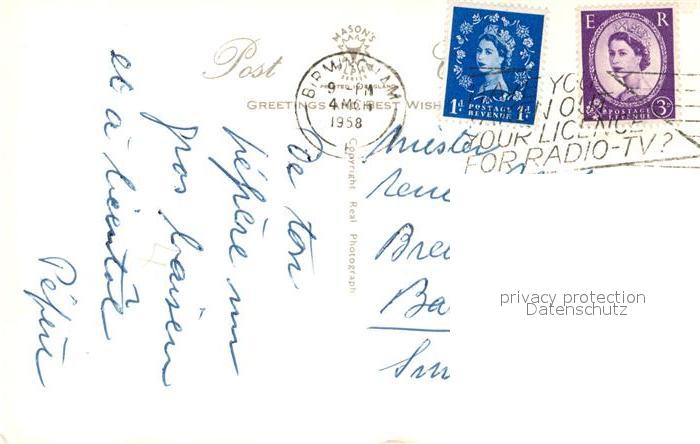 Post
MASON'S
ALPHA
SERIES
PRINTED IN ENGLAND
GREETINGS AND BEST WISH
BIRMINGHAM
9- PM
4 MCH
1958
1d POSTAGE REVENUE 1d
E R
POSTAGE REVENUE 3d
YOU
YOUR LICENCE
FOR RADIO-TV?
Copyright Real Photograph
De ton
pépère un
gros baiser
et à bientôt
Pépère
Bre
Ba
privacy protection
Datenschutz